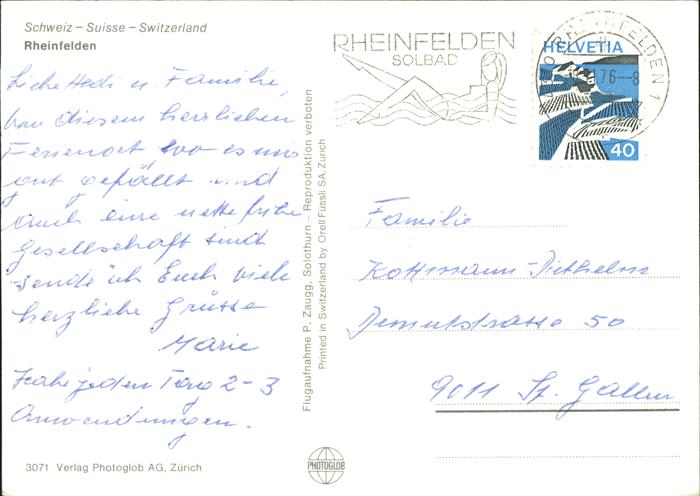 Schweiz – Suisse – Switzerland
Rheinfelden
Liebe Hedi u. Familie,
Von diesem herrlichen
Ferienort wo es uns
gut gefällt und
auch eine nette
Gesellschaft sind
sende ich Euch viele
herzliche Grüsse
Marie
Habe jeden Tag 2-3
Anwendungen.
3071 Verlag Photoglob AG, Zürich
Flugaufnahme P. Zaugg, Solothurn – Reproduktion verboten
Printed in Switzerland by Orell Füssli SA Zurich
PHOTOGLOB
RHEINFELDEN
SOLBAD
HELVETIA
40
RHEINFELDEN 1
76—8
Familie
Kottmann-Diethelm
Demutstrasse 50
9011 St. Gallen